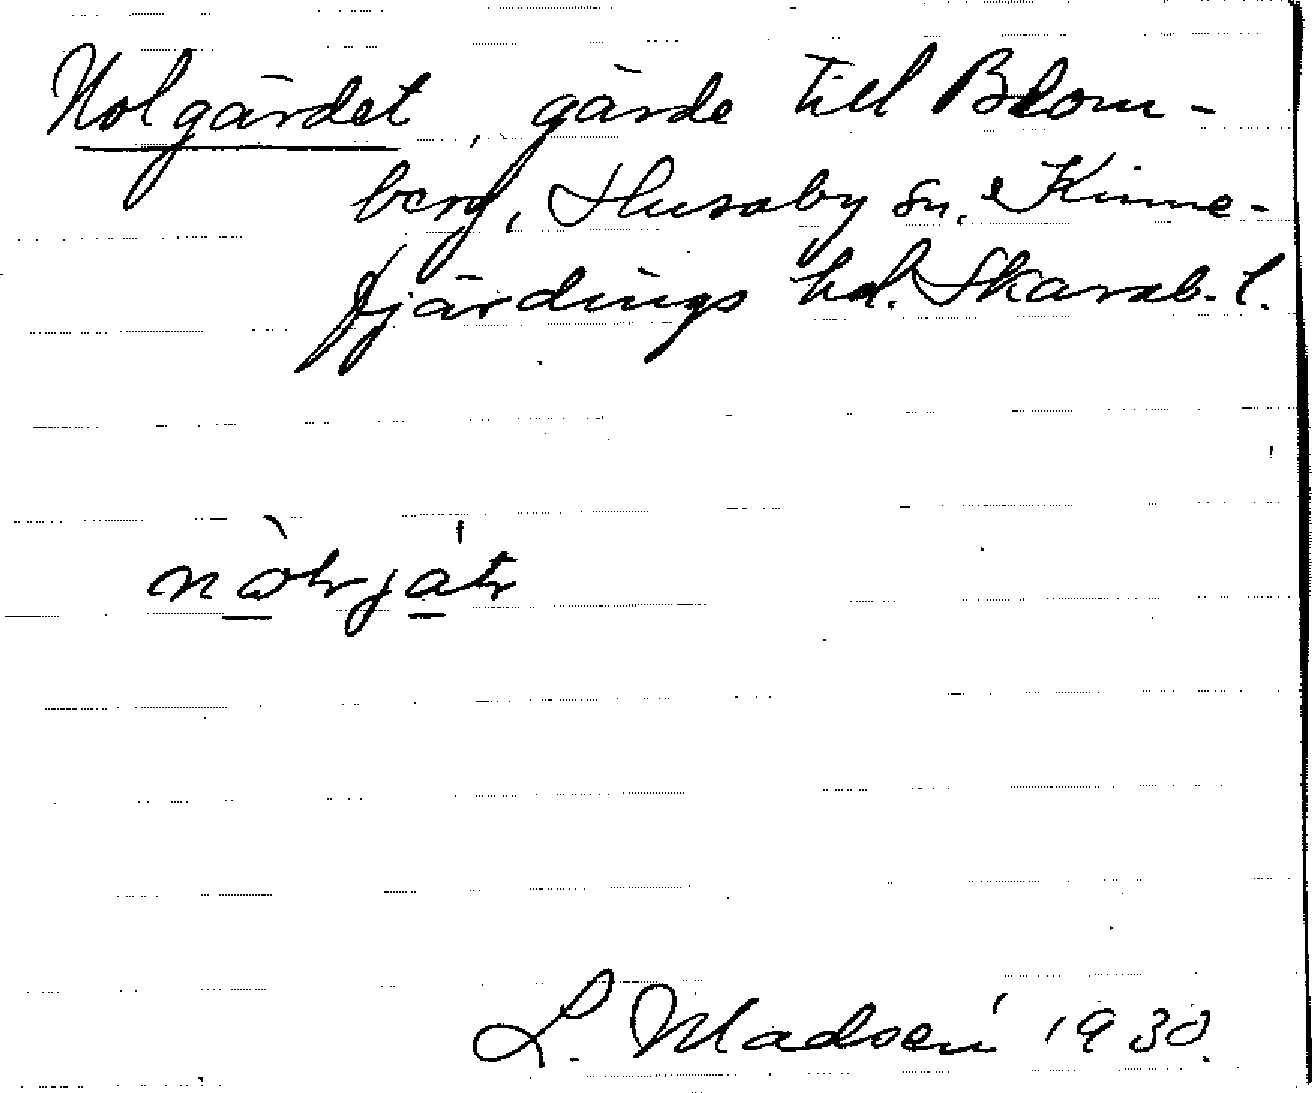 Nolgärdet, gärde till Blom-
berg, Husaby sn, Kinne-
fjärdings hd. Skarab. l.
L. Madsén 1930.